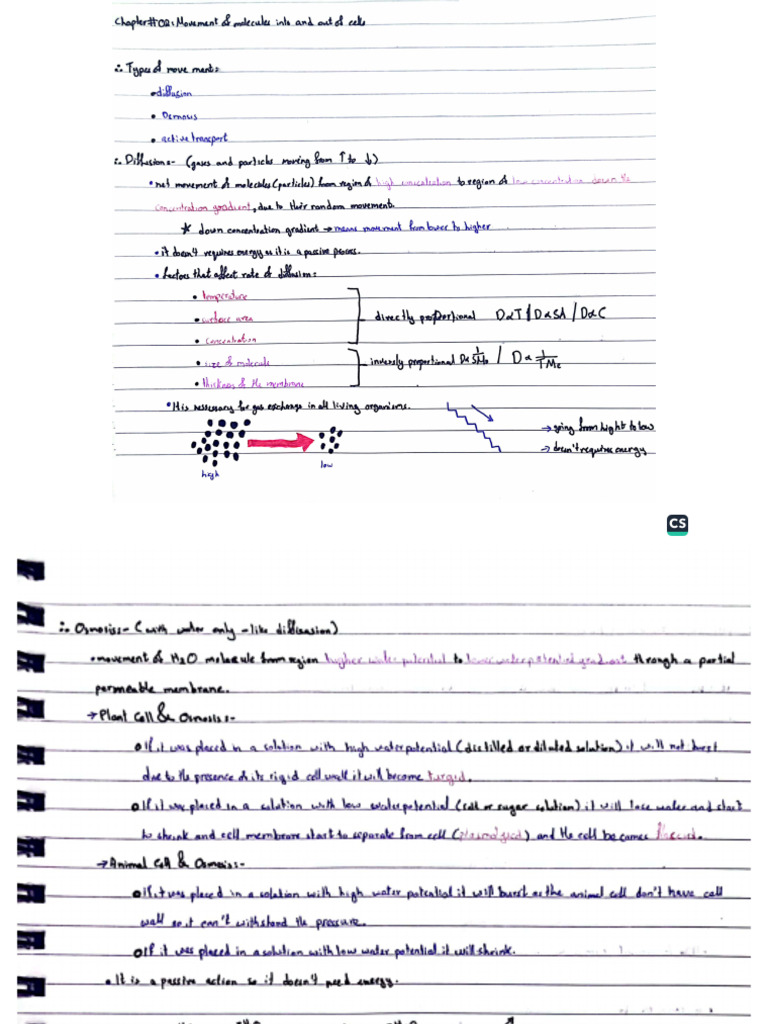 Chapter#02: Movement of molecules into and out of cells
∴ Types of movement:
• diffusion
• Osmosis
• active transport
∴ Diffusion:- (gases and particles moving from ↑ to ↓)
• net movement of molecules (particles) from region of high concentration to region of low concentration down the
concentration gradient, due to their random movement.
★ down concentration gradient → means movement from lower to higher
• it doesn't requires energy as it is a passive process.
• factors that affect rate of diffusion:
• temperature
• surface area
• concentration
directly proportional D∝T / D∝SA / D∝C
• size of molecule
• thickness of the membrane
inversely proportional D∝ 1/ / D∝ 1/
• It is necessary for gas exchange in all living organisms.
→ going from hight to low
→ doesn't requires energy
high
low
CS
∴ Osmosis:- (with water only - like diffusion)
• movement of H2O molecule from region higher water potential to lower water potential gradient through a partial
permeable membrane.
→ Plant Cell & Osmosis:-
If it was placed in a solution with high water potential (distilled or diluted solution) it will not burst
due to the presence of its rigid cell wall it will become turgid.
If it was placed in a solution with low water potential (salt or sugar solution) it will lose water and start
to shrink and cell membrane start to separate from cell (plasmolysed) and the cell becomes flaccid.
→ Animal Cell & Osmosis:-
If it was placed in a solution with high water potential it will burst as the animal cell don't have cell
wall so it can't withstand the pressure.
If it was placed in a solution with low water potential it will shrink.
• It is a passive action so it doesn't need energy.